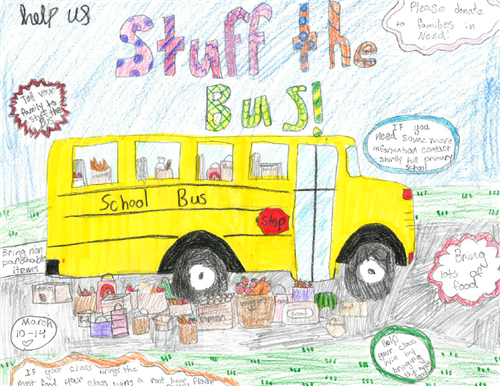 help us
Stuff the
Bus!
Please donate
to families in
Need!
Tell your
family to
stuff the
bus
IF you
need some more
information contact
Shirly hill primary
School
School Bus
Stop
Bring non
items
Bring
lots of
food
March
10-14
Help
your class
win by
bringing
IF your class brings the
most food your class wins a root beer float